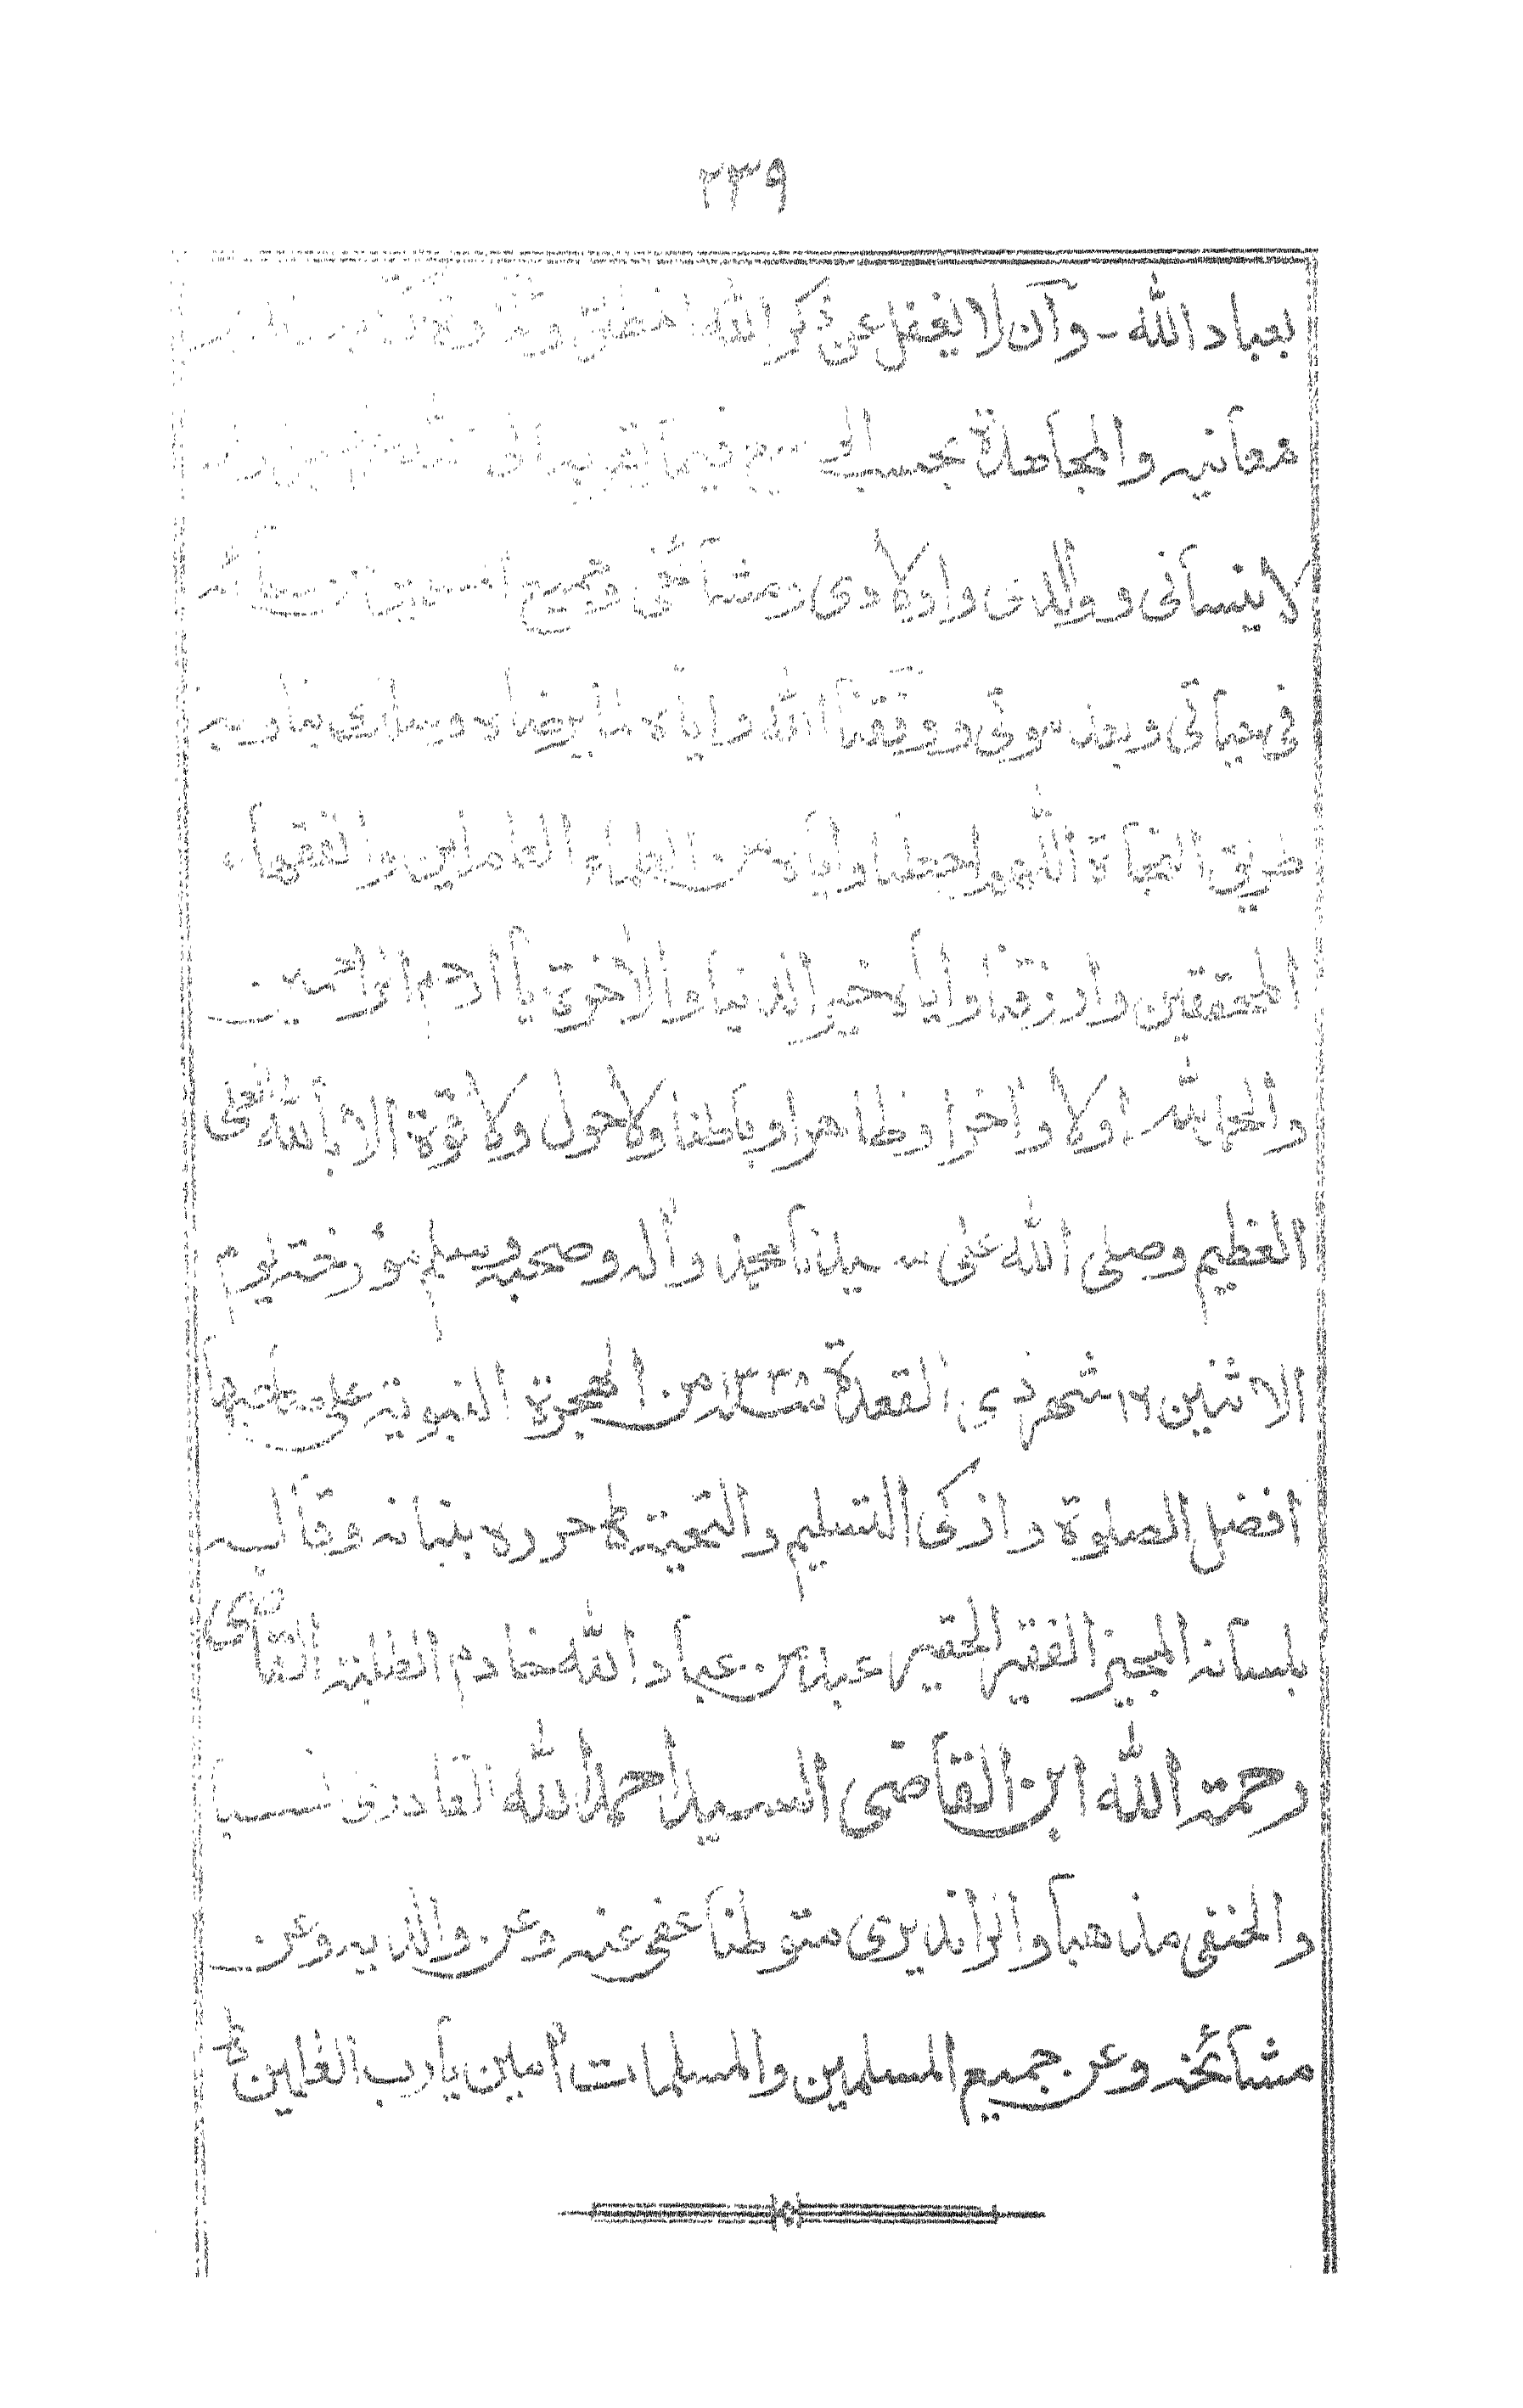 ٢٣٩
بعباد الله - وآن لا يغفل عن ذكر الله
معآنيه والمجآهدة بحسب فيمآ يقربه الى
لا ينسآنى ووالدى واولادى ومشآئخى وجميع
فى حياتى وبعد موتى ووفقنآ الله واياه لما يرضاه ويسلك بنا وبه
طريق النجآة اللهم اجعلنا واياه من العلماء العاملين والفقهآء
المحققين وارزقنا واياه خير الدنيا والاخرة يآ ارحم الراحمين
والحمد لله اولا واخرا وظاهرا وباطنا ولا حول ولا قوة الا بالله العلى
العظيم وصلى الله على سيدنا محمد وآله وصحبه وسلم مؤرخته يوم
الاثنين ١٦ شهر ذى القعدة سنه ١٣٣٨ من الهجرة النبوية على صاحبهآ
افضل الصلوة وازكى التسليم والتحية ط حرره ببنانه وقاله
بلسآنه المجيز الفقير الحقير عبد من عبآد الله خادم الطلبة القاضى
رحمة الله ابن القآضى السيد احمد الله القادرى نسبا
والحنفى مذهبآ والراندیری متوطنآ عفى عنه وعن والديه وعن
مشآئخه وعن جميع المسلمين والمسلمات آمين يآرب العلمين ط